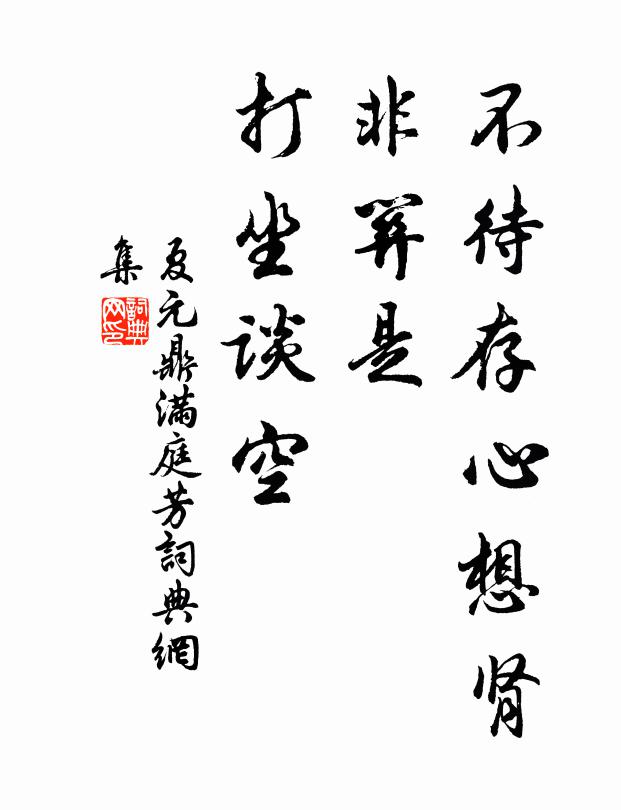 不待存心想肾
非羿是
打坐谈空
夏元鼎满庭芳詞典網
集
詞典网印